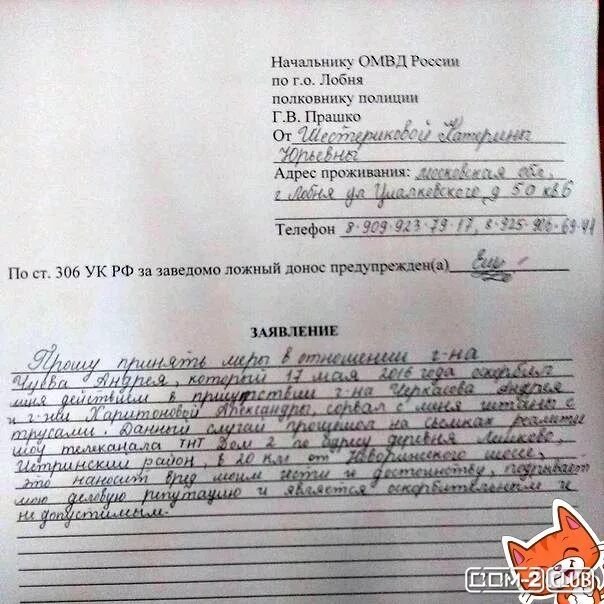 Начальнику ОМВД России
по г.о. Лобня
полковнику полиции
Г.В. Прашко
От Шестериковой Катерины
Юрьевны
Адрес проживания: московская обл,
г Лобня ул д 50 кв 6
Телефон 8-909-923-79-17, 8-925-906-69-44
По ст. 306 УК РФ за заведомо ложный донос предупрежден(а)
ЗАЯВЛЕНИЕ
Прошу принять меры в отношении г-на
Чуева Андрея, который 17 мая 2016 года оскорбил
меня действием в присутствии г-на Черкасова Андрея
и г-жи Харитоновой Александры, сорвал с меня штаны с
трусами. Данный случай произошел на съемках реалити
шоу телеканала ТНТ Дом 2 по адресу деревня Лешково,
Истринский район, в 20 км от шоссе,
это наносит вред моим чести и достоинству, подрывает
мою деловую репутацию и является оскорбительным и
не допустимым.
ДОМ-2 CLUB